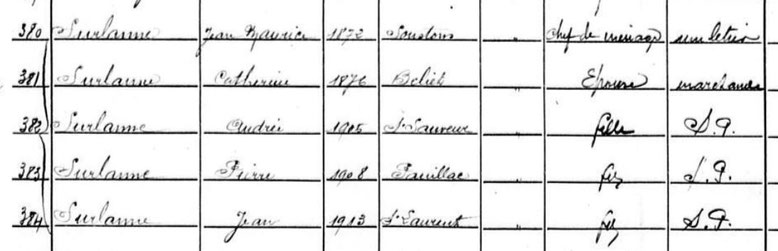 380 Surlanne Jean Maurice 1872 Soustons " Chef de ménage muletier
381 Surlanne Catherine 1876 Beliet " Epouse marchande
382 Surlanne Andrée 1905 St Sauveur " fille S.P.
383 Surlanne Pierre 1908 Pauillac " fils S.P.
384 Surlanne Jean 1913 St Laurent " fils S.P.